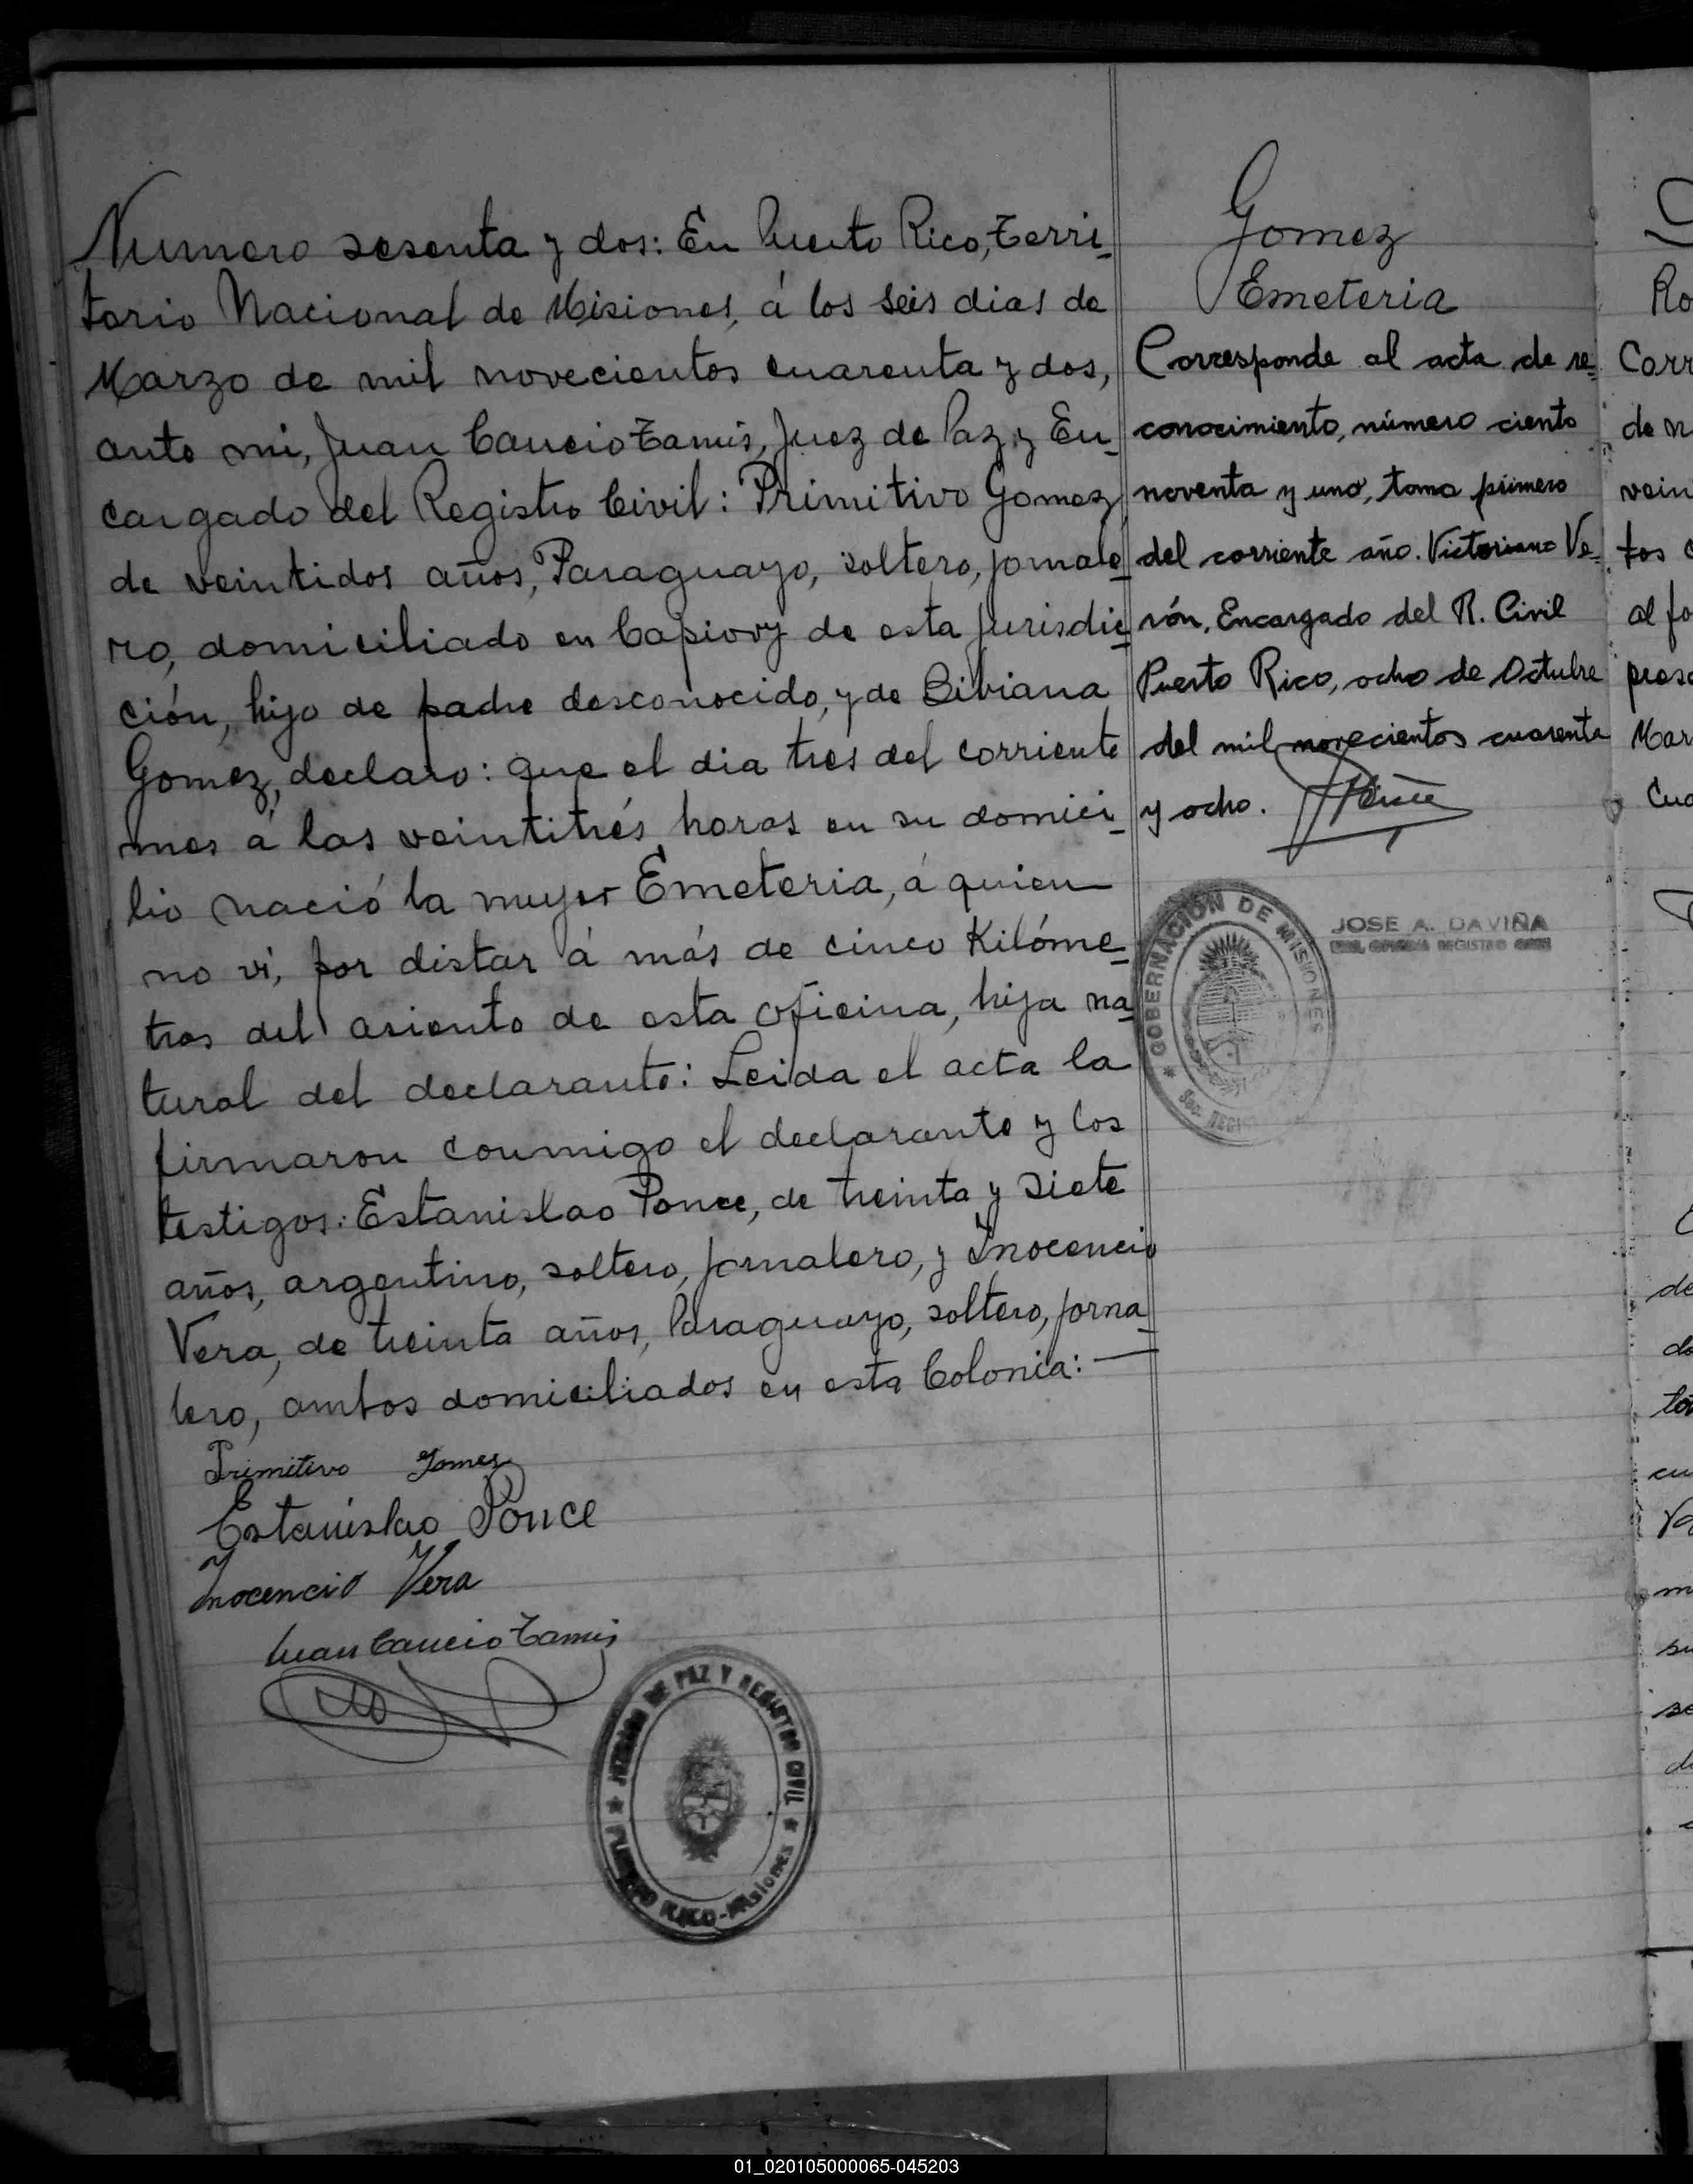 Numero sesenta y dos: En Puerto Rico, Terri-
torio Nacional de Misiones, á los seis dias de
Marzo de mil novecientos cuarenta y dos,
ante mi, Juan Cancio Tamis, Juez de Paz y En-
cargado del Registro Civil: Primitivo Gomez,
de veintidos años, Paraguayo, soltero, jornale-
ro, domiciliado en Capiovy de esta jurisdic-
ción, hijo de padre desconocido, y de Bibiana
Gomez, declaro: que el dia tres del corriente
mes á las veintitrés horas en su domici-
lio nació la mujer Emeteria, á quien
no vi, por distar á más de cinco Kilóme-
tros del asiento de esta oficina, hija na-
tural del declarante: Leida el acta la
firmaron conmigo el declarante y los
testigos: Estanislao Ponce, de treinta y siete
años, argentino, soltero, jornalero, y Inocencio
Vera, de treinta años, Paraguayo, soltero, jorna-
lero, ambos domiciliados en esta Colonia:
Primitivo Gomez
Estanislao Ponce
Inocencio Vera
Juan Cancio Tamis
JUZGADO DE PAZ Y REGISTRO CIVIL
PUERTO RICO-Misiones
Gomez
Emeteria
Corresponde al acta de re-
conocimiento, número ciento
noventa y uno, tomo primero
del corriente año. Victoriano Ve-
rón, Encargado del R. Civil
Puerto Rico, ocho de Octubre
del mil novecientos cuarenta
y ocho.
GOBERNACION DE MISIONES
JOSE A. DAVIÑA
Ro
Corr
de n
vein
tos
al fo
prese
Mar
Cua
de
do
cu
m
su
se
01_020105000065-045203